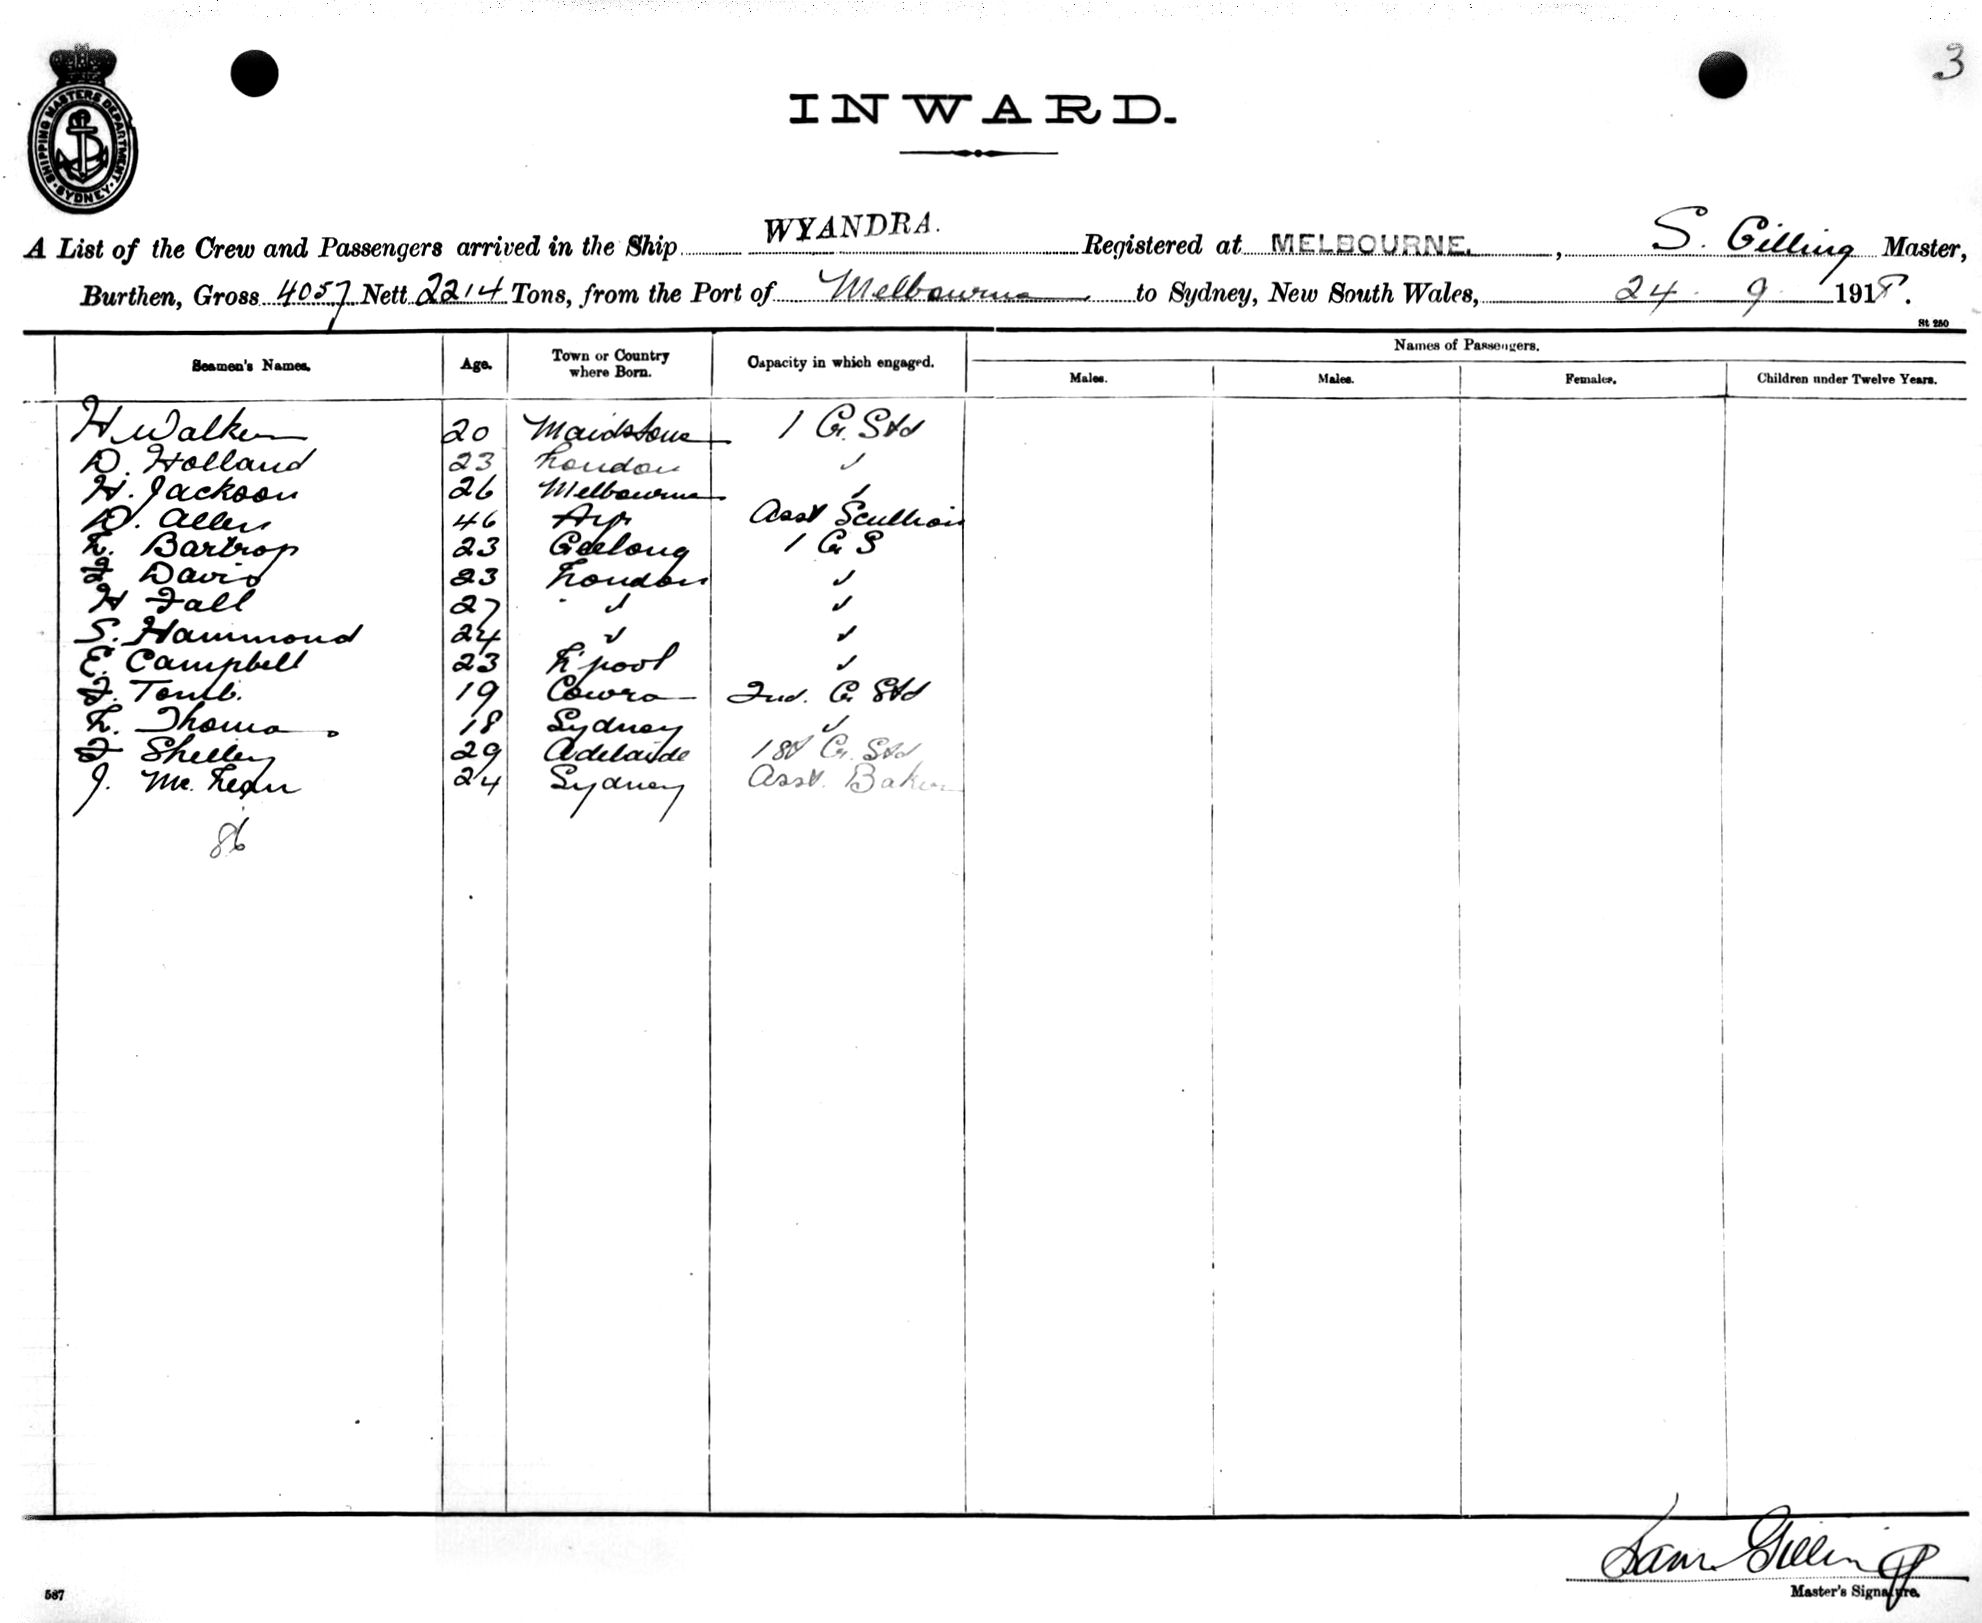 3
SHIPPING MASTERS DEPARTMENT
SYDNEY
INWARD.
A List of the Crew and Passengers arrived in the Ship WYANDRA. Registered at MELBOURNE, S. Gilling Master,
Burthen, Gross 4057 Nett 2214 Tons, from the Port of Melbourne to Sydney, New South Wales, 24 9 1918.
St 280
Seamen's Names. Age. Town or Country where Born. Capacity in which engaged. Names of Passengers.
Males. Males. Females. Children under Twelve Years.
H Walker 20 Maidstone 1 Cr. Std
D. Holland 23 London ✓
H. Jackson 26 Melbourne ✓
D. Allen 46 Ayr Asst Scullion
L. Bartrop 23 Geelong 1 Cr S
F Davis 23 London ✓
H Fall 27 ✓ ✓
S. Hammond 24 ✓ ✓
E. Campbell 23 L'pool ✓
F. Tomb. 19 Cowra 2nd. Cr Std
L. Thomas 18 Sydney ✓
F Shelley 29 Adelaide 1st Cr. Std
J. Mc Lean 24 Sydney Asst. Baker
86
Sam Gilling
Master's Signature.
587